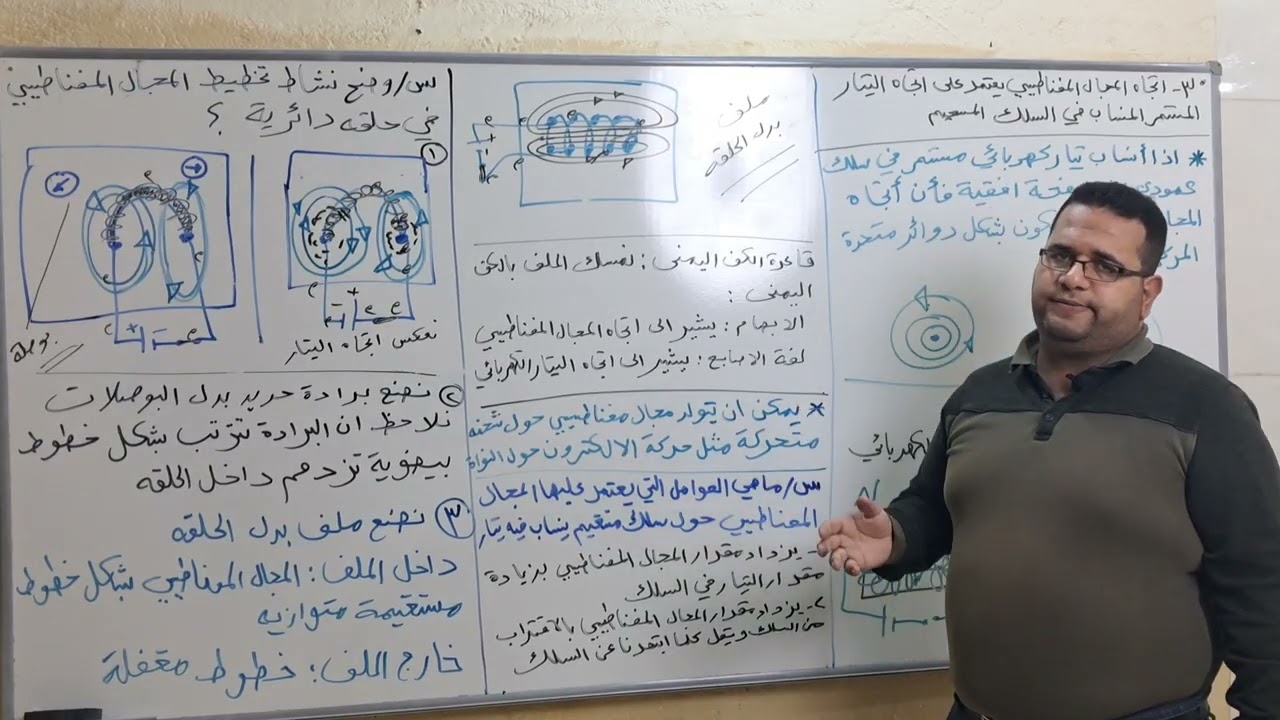 ٣- اتجاه المجال المغناطيسي يعتمد على اتجاه التيار
المستمر المنساب في السلك المستقيم
* اذا أنساب تيار كهربائي مستمر في سلك
عمودي افقية فأن أتجاه
كون بشكل دوائر متحدة
الكهربائي
N
ملف
بدل الحلقه
e
e
+
-
قاعدة الكف اليمنى : نمسك الملف بالكف
اليمنى :
الابهام : يشير الى اتجاه المجال المغناطيسي
لفة الاصابع : يشير الى اتجاه التيار الكهربائي
* يمكن ان يتولد مجال مغناطيسي حول شحنه
متحركة مثل حركة الالكترون حول النواة
س/ ماهي العوامل التي يعتمد عليها المجال
المغناطيسي حول سلك مستقيم ينساب فيه تيار
- يزداد مقدار المجال المغناطيسي بزيادة
مقدار التيار في السلك
٢- يزداد مقدار المجال المغناطيسي بالاقتراب
من السلك ويقل كلما ابتعدنا عن السلك
س/ وضح نشاط تخطيط المجال المغناطيسي
في حلقه دائرية ؟
١
e
e
e
+
-
نعكس اتجاه التيار
e
e
e
+
-
بوصله
٢ نضع برادة حديد بدل البوصلات
نلاحظ ان البرادة تترتب بشكل خطوط
بيضوية تزدحم داخل الحلقه
٣ نضع ملف بدل الحلقه
داخل الملف : المجال المغناطيسي بشكل خطوط
مستقيمة متوازيه
خارج اللف : خطوط مقفلة